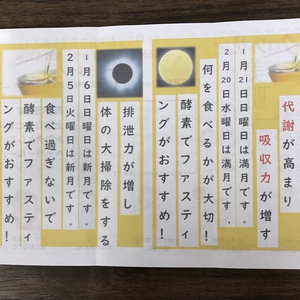 代謝が高まり
吸収力が増す
1月21日日曜日は満月です。
2月20日水曜日は満月です。
何を食べるかが大切!
酵素でファスティ
ングがおすすめ!
排泄力が増し
体の大掃除をする
1月6日日曜日は新月です。
2月5日火曜日は新月です。
食べ過ぎないで
酵素でファスティ
ングがおすすめ!